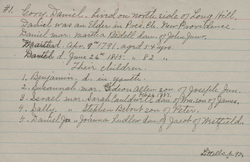 #1. Corry, Daniel, lived on north side of Long Hill.
Daniel was an Elder in Pres. Ch. New Providence.
Daniel mar. Martha Riddell dau of John, Junr.
Martha d. Apr. 9th 1791, aged 54 yrs.
Daniel d. June 26th 1815 " 82 "
Their children
1. Benjamin, d. in youth.
2. Susannah mar Gideon Allen son of Joseph, Junr.
3. Israel mar. Sarah dau of James.
4. Sally " Stephen son of Peter.
5. Daniel Jr " Joanna Ludlow dau of Jacob of Westfield.
Littell p.